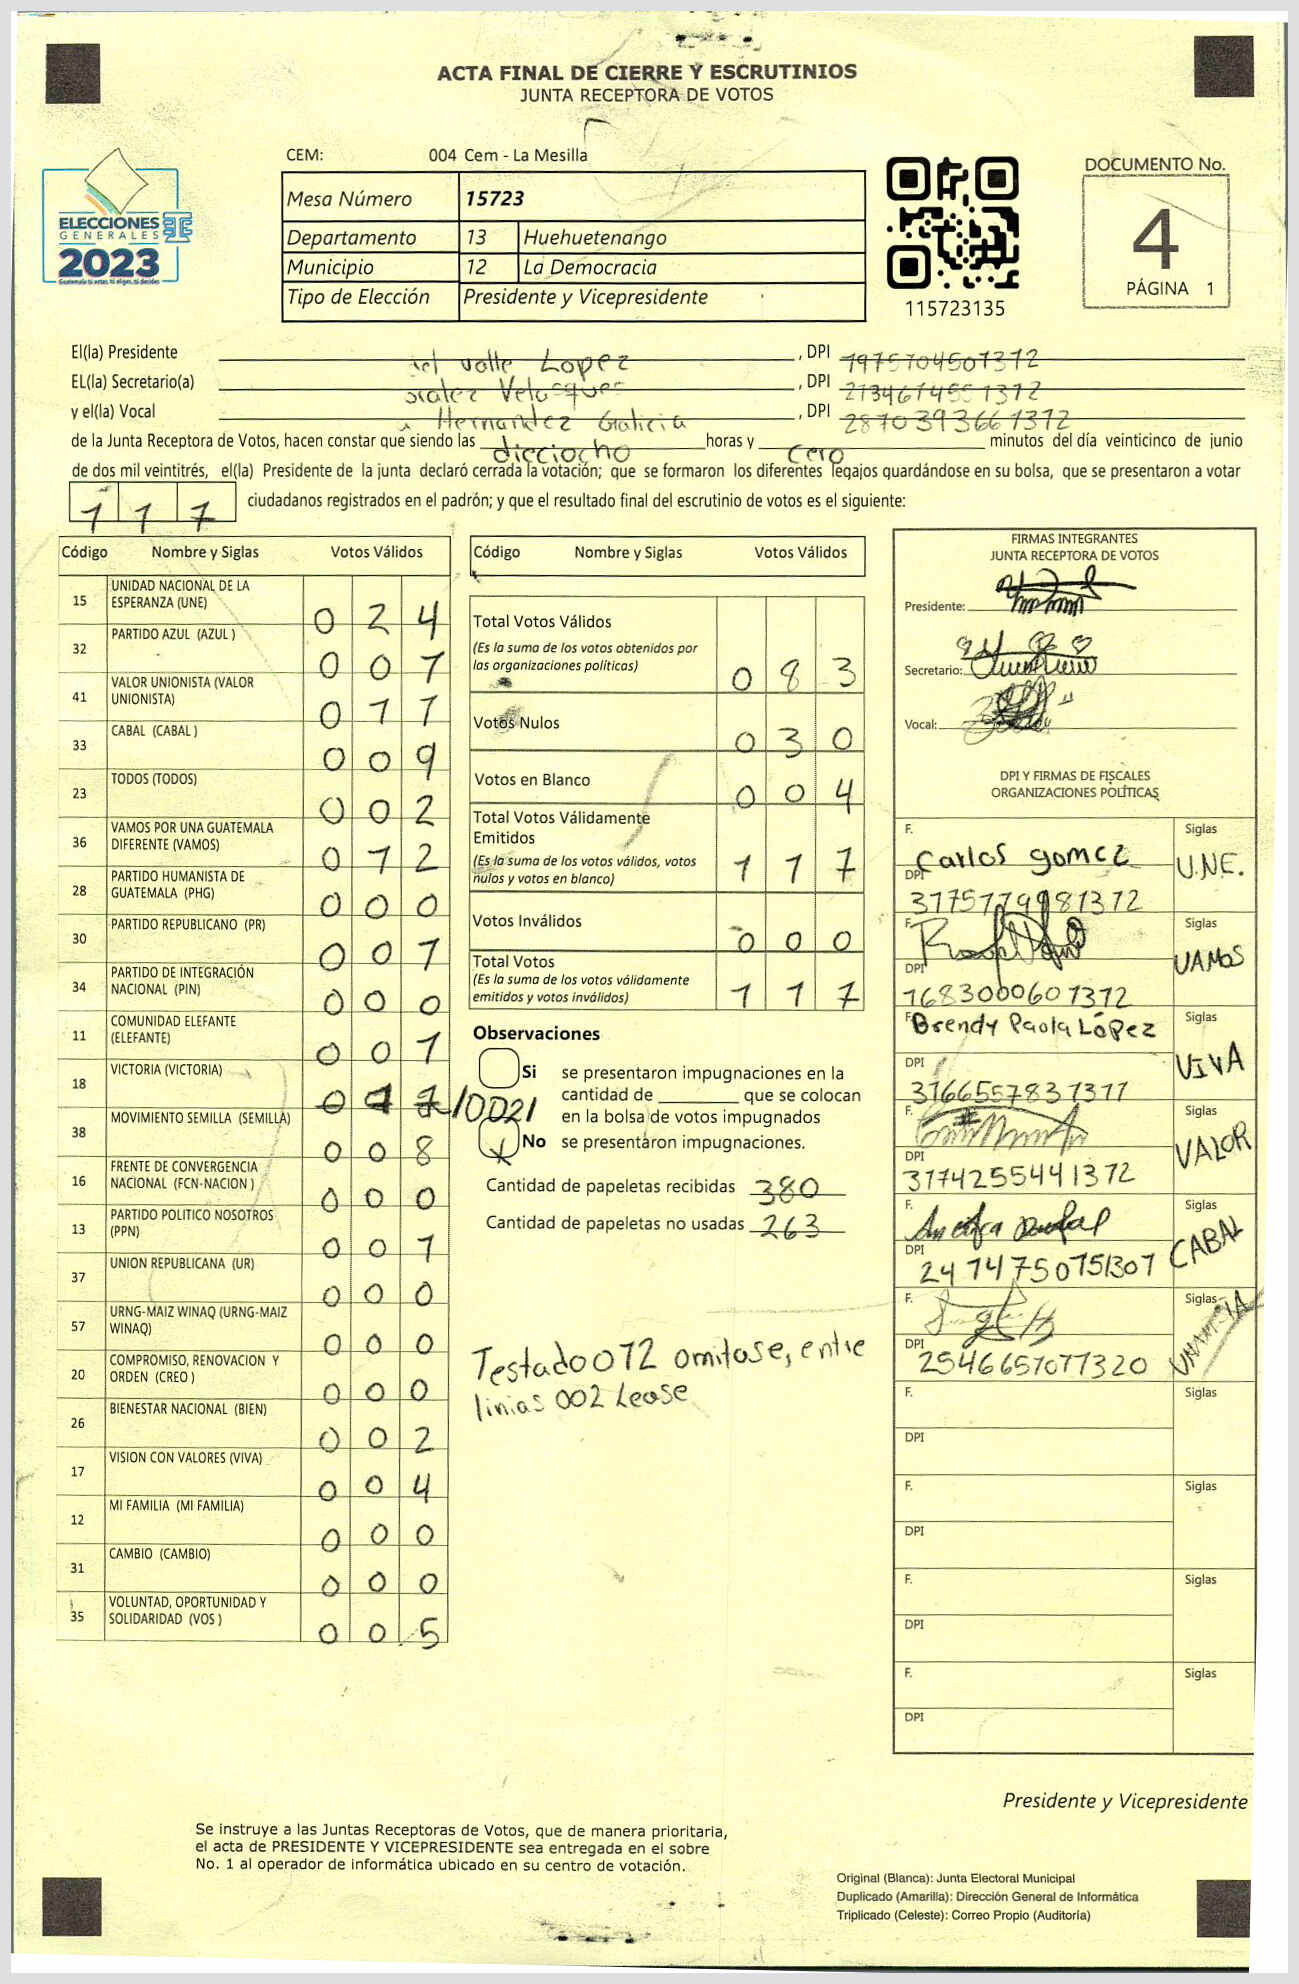 ACTA FINAL DE CIERRE Y ESCRUTINIOS
JUNTA RECEPTORA DE VOTOS
CEM: 004 Cem - La Mesilla
ELECCIONES
GENERALES
2023
Mesa Número 15723
Departamento 13 Huehuetenango
Municipio 12 La Democracia
Tipo de Elección Presidente y Vicepresidente
115723135
DOCUMENTO No.
4
PÁGINA 1
El(la) Presidente del Valle Lopez , DPI 1975704501312
EL(la) Secretario(a) Velasquez , DPI 2134614551312
y el(la) Vocal Hernandez Galicia , DPI 2870393661312
de la Junta Receptora de Votos, hacen constar que siendo las dieciocho horas y cero minutos del día veinticinco de junio
de dos mil veintitrés, el(la) Presidente de la junta declaró cerrada la votación; que se formaron los diferentes legajos guardándose en su bolsa, que se presentaron a votar
117 ciudadanos registrados en el padrón; y que el resultado final del escrutinio de votos es el siguiente:
Código Nombre y Siglas Votos Válidos
15 UNIDAD NACIONAL DE LA ESPERANZA (UNE) 024
32 PARTIDO AZUL (AZUL ) 001
41 VALOR UNIONISTA (VALOR UNIONISTA) 011
33 CABAL (CABAL ) 009
23 TODOS (TODOS) 002
36 VAMOS POR UNA GUATEMALA DIFERENTE (VAMOS) 012
28 PARTIDO HUMANISTA DE GUATEMALA (PHG) 000
30 PARTIDO REPUBLICANO (PR) 001
34 PARTIDO DE INTEGRACIÓN NACIONAL (PIN) 000
11 COMUNIDAD ELEFANTE (ELEFANTE) 001
18 VICTORIA (VICTORIA) 012 /002/
38 MOVIMIENTO SEMILLA (SEMILLA) 008
16 FRENTE DE CONVERGENCIA NACIONAL (FCN-NACION ) 000
13 PARTIDO POLITICO NOSOTROS (PPN) 001
37 UNION REPUBLICANA (UR) 000
57 URNG-MAIZ WINAQ (URNG-MAIZ WINAQ) 000
20 COMPROMISO, RENOVACION Y ORDEN (CREO ) 000
26 BIENESTAR NACIONAL (BIEN) 002
17 VISION CON VALORES (VIVA) 004
12 MI FAMILIA (MI FAMILIA) 000
31 CAMBIO (CAMBIO) 000
35 VOLUNTAD, OPORTUNIDAD Y SOLIDARIDAD (VOS ) 005
Código Nombre y Siglas Votos Válidos
Total Votos Válidos 083
(Es la suma de los votos obtenidos por
las organizaciones políticas)
Votos Nulos 030
Votos en Blanco 004
Total Votos Válidamente
Emitidos 117
(Es la suma de los votos válidos, votos
nulos y votos en blanco)
Votos Inválidos 000
Total Votos 117
(Es la suma de los votos válidamente
emitidos y votos inválidos)
Observaciones
Si se presentaron impugnaciones en la
cantidad de ________ que se colocan
en la bolsa de votos impugnados
X No se presentaron impugnaciones.
Cantidad de papeletas recibidas 380
Cantidad de papeletas no usadas 263
Testado 012 omitase, entre
linias 002 Lease
FIRMAS INTEGRANTES
JUNTA RECEPTORA DE VOTOS
Presidente:
Secretario:
Vocal:
DPI Y FIRMAS DE FISCALES
ORGANIZACIONES POLÍTICAS
F. Carlos gomez Siglas U.N.E.
DPI 3175179981312
F. Siglas VAMOS
DPI 1683000601312
F. Brendy Paola López Siglas VIVA
DPI 3166557831311
F. Siglas VALOR
DPI 3174255441312
F. Siglas CABAL
DPI 2474750751307
F. Siglas
DPI 2546651071320
F. Siglas
DPI
F. Siglas
DPI
F. Siglas
DPI
F. Siglas
DPI
Presidente y Vicepresidente
Se instruye a las Juntas Receptoras de Votos, que de manera prioritaria,
el acta de PRESIDENTE Y VICEPRESIDENTE sea entregada en el sobre
No. 1 al operador de informática ubicado en su centro de votación.
Original (Blanca): Junta Electoral Municipal
Duplicado (Amarilla): Dirección General de Informática
Triplicado (Celeste): Correo Propio (Auditoría)